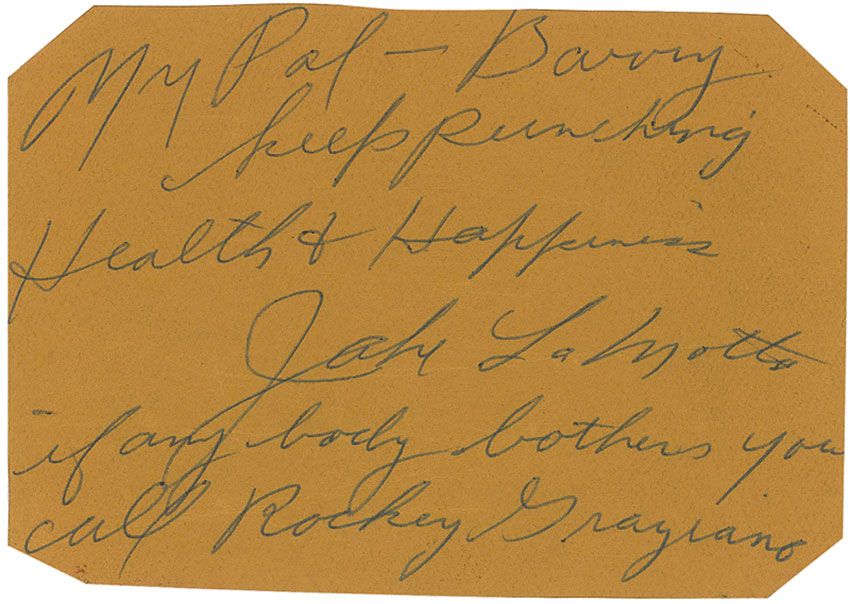 My Pal — Barry
keep punching
Health & Happiness
Jake LaMotta
if any body bothers you
call Rockey Graziano